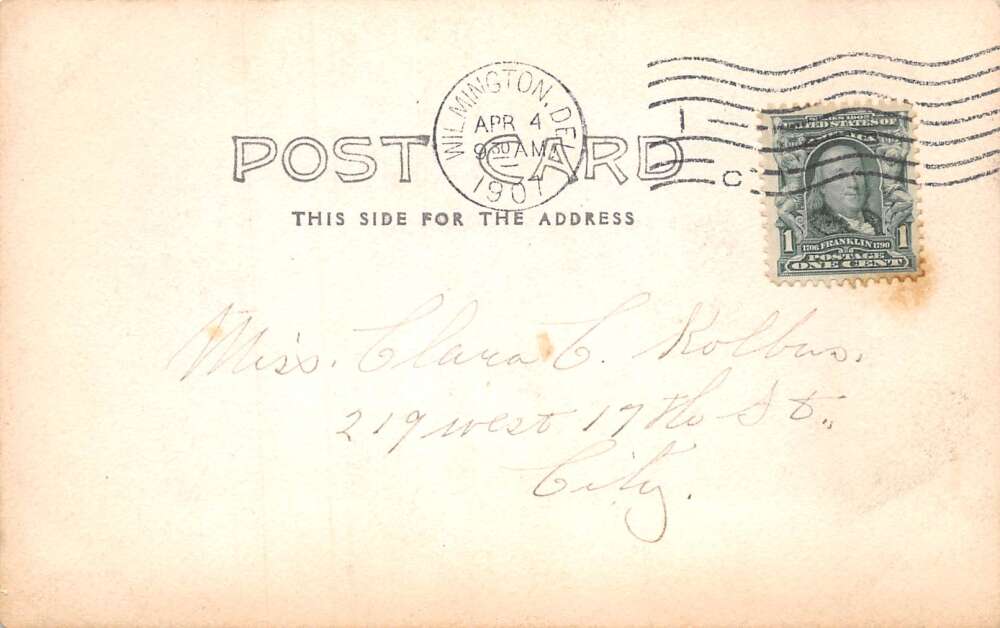 WILMINGTON, DEL.
APR 4
9 30 AM
1907
1
C
POST CARD
THIS SIDE FOR THE ADDRESS
UNITED STATES OF
AMERICA
1 1706 FRANKLIN 1790 1
POSTAGE
ONE CENT
Miss. Clara C. Kolbus.
219 west 17th St.,
City.